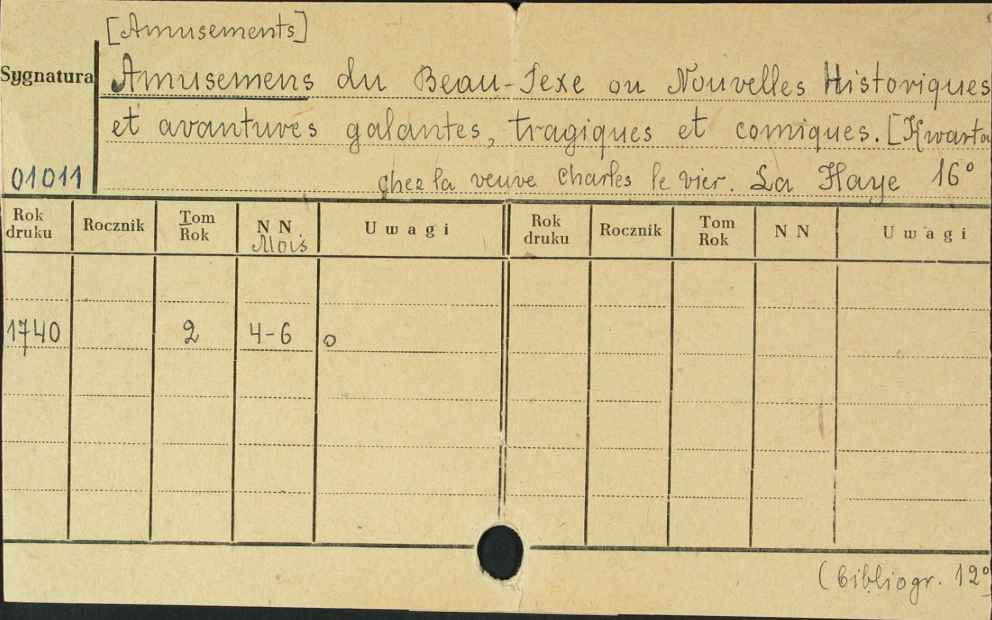 [Amusements]
Sygnatura Amusemens du Beau-Sexe ou Nouvelles Historiques
et avantures galantes, tragiques et comiques. [Kwarta
01011 chez la veuve Charles le vier. La Haye 16°
Rok druku Rocznik Tom Rok N N Mois Uwagi Rok druku Rocznik Tom Rok N N Uwagi
1740 2 4-6 o
(bibliogr. 12°